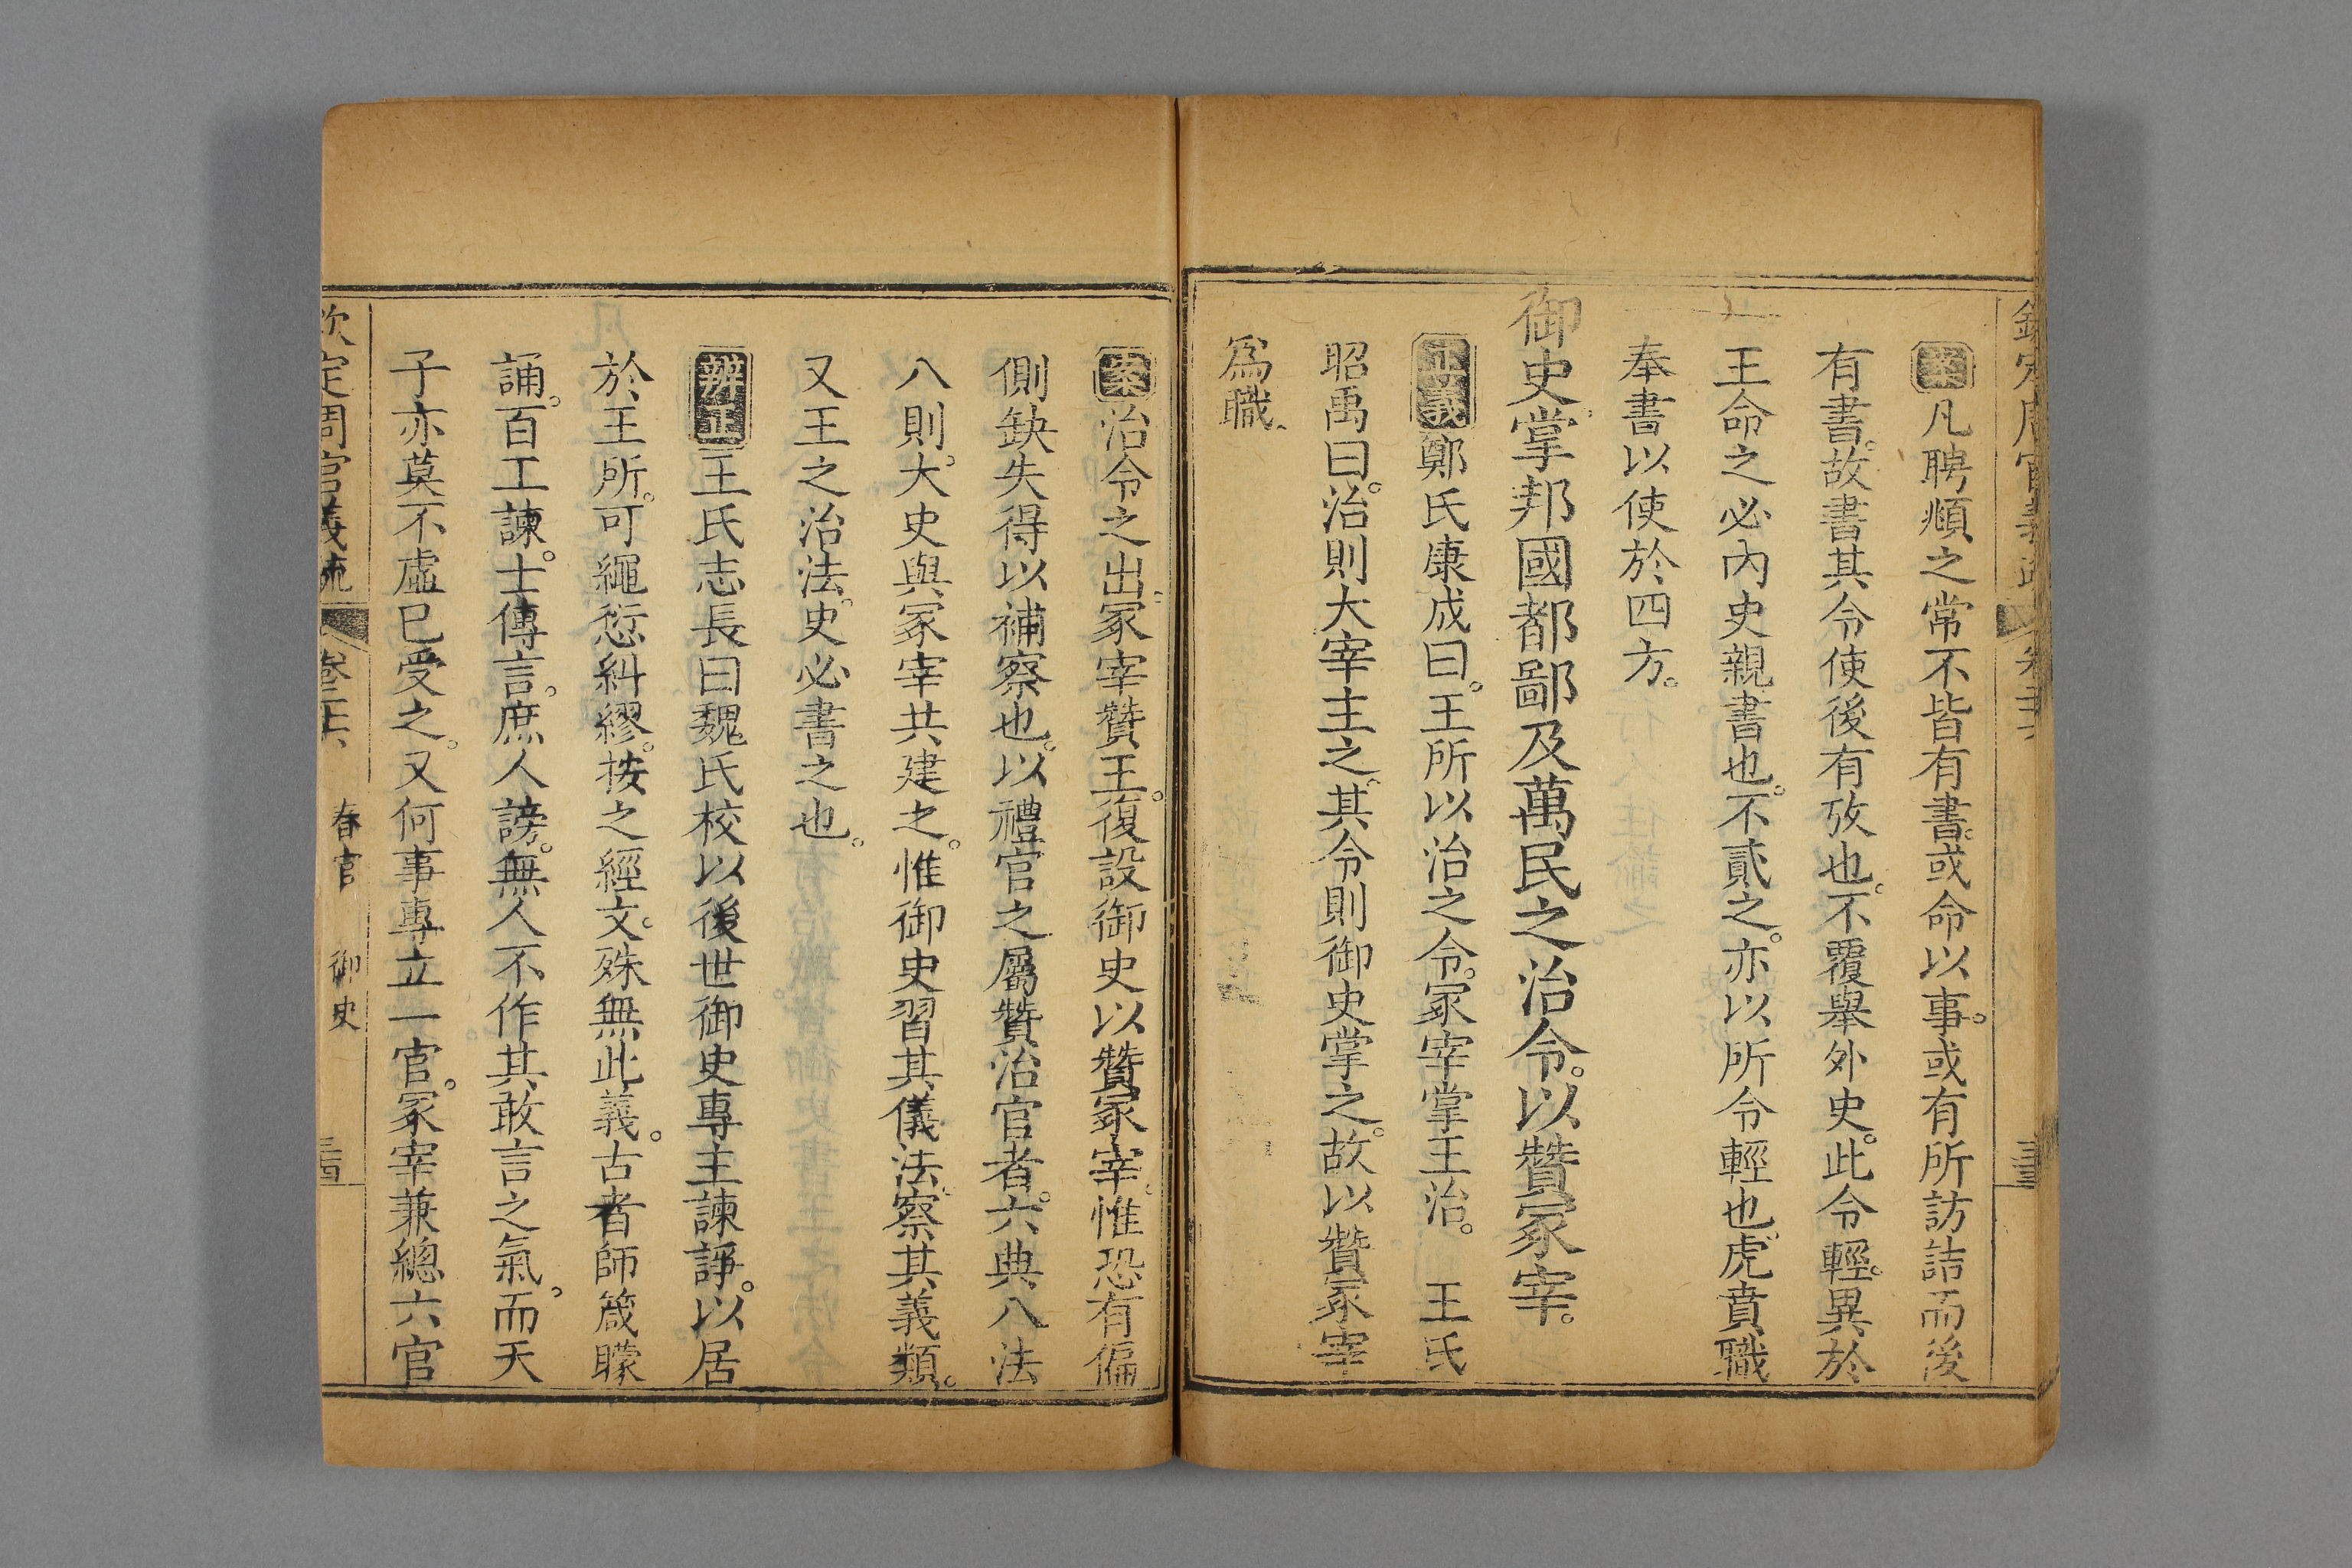 欽定周官義疏 卷二十六
案凡聘頫之常不皆有書。或命以事。或有所訪詰而後
有書。故書其令使後有攷也。不覆舉外史。此令輕。異於
王命之必內史親書也。不貳之。亦以所令輕也。虎賁職
奉書以使於四方。
御史掌邦國都鄙及萬民之治令。以贊冢宰。
正義鄭氏康成曰。王所以治之令。冢宰掌王治。 王氏
昭禹曰。治則大宰主之。其令則御史掌之。故以贊冢宰
爲職。
案治令之出。冢宰贊王。復設御史以贊冢宰。惟恐有偏
側缺失得以補察也。以禮官之屬贊治官者。六典八法
八則。大史與冢宰共建之。惟御史習其儀法。察其義類。
又王之治法。史必書之也。
辨正王氏志長曰魏氏校以後世御史專主諫諍。以居
於王所。可繩愆糾繆。按之經文。殊無此義。古者師箴矇
誦。百工諫。士傳言。庶人謗。無人不作其敢言之氣。而天
子亦莫不虛已受之。又何事專立一官。冢宰兼總六官
欽定周官義疏 卷二十六 春官 御史 三四